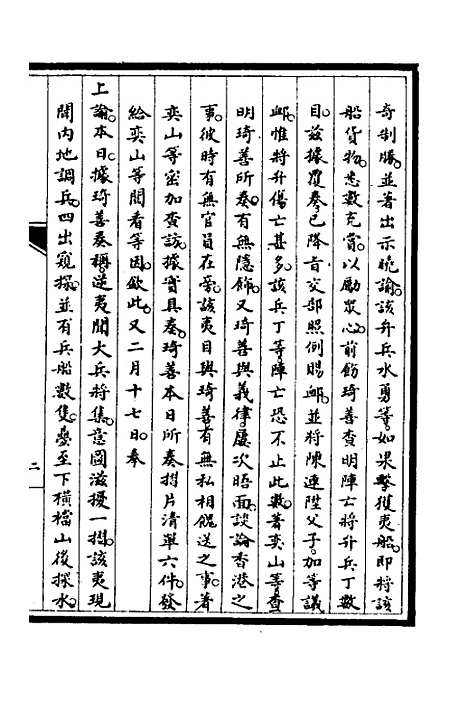 奇制勝並著出示曉諭該弁兵水勇等如果擊獲夷船即將該
船貨物悉數充賞以勵眾心前飭琦善查明陣亡將弁兵丁數
目茲據覆奏已降旨交部照例賜卹並將陳連陞父子加等議
卹惟將弁傷亡甚多該兵丁等陣亡恐不止此數著奕山等查
明琦善所奏有無隱飾又琦善與義律屢次晤面談論香港之
事彼時有無官員在旁該夷目與琦善有無私相餽送之事著
奕山等密加查訪據實具奏琦善本日所奏摺片清單六件發
給奕山等閱看等因欽此又二月十七日奉
上諭本日據琦善奏稱逆夷聞大兵將集意圖滋擾一摺該夷現
聞內地調兵四出窺探並有兵船數隻疊至下橫檔山後探水
二